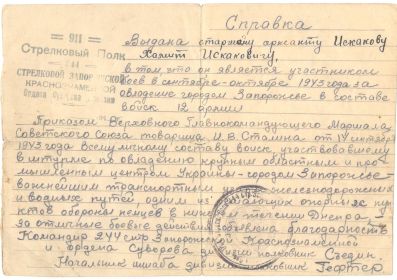 Справка
— 911 —
Стрелковый Полк
244
СТРЕЛКОВОЙ ЗАПОРОЖСКОЙ
КРАСНОЗНАМЕННОЙ
Ордена
Выдана старшему сержанту Искакову
Искаковичу,
в том, что он является участником
боев в сентябре-октябре 1943 года за
овладение городом Запорожье в составе
войск 12 армии
Приказом Верховного Главнокомандующего Маршала
Советского Союза товарища И. В. Сталина от 14 октября
1943 года всему личному составу войск, участвовавшему
в штурме по овладению крупным областным и про-
мышленным центром Украины-городом Запорожье-
важнейшим транспортным узлом железнодорожных
и водных путей, одним из решающих опорных пун-
ктов обороны немцев в нижнем течении Днепра,
за отличные боевые действия объявлена благодарность
Командир 244 стр Запорожской Краснознаменной
и ордена Суворова дивизии полковник
Начальник штаба дивизии полковник Гефтер.